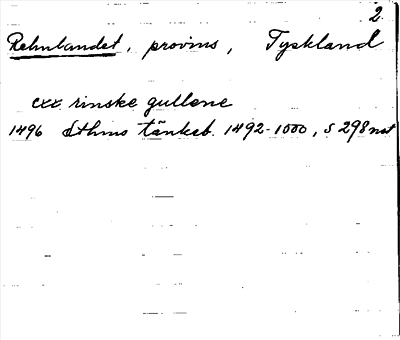 2.
Rehnlandet, provins, Tyskland
cxx rinske gullene
1496 Sthms tänkeb. 1492-1500, s 298 not